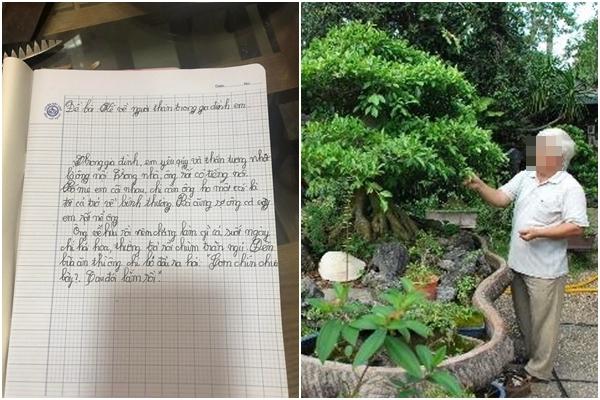 Đề bài: Kể về người thân trong gia đình em
Trong gia đình, em yêu quý và thần tượng nhất
là ông nội. Trong nhà, ông rất có tiếng nói.
Bố mẹ em cãi nhau, chỉ cần ông ho một cái là
tất cả trở về bình thường. Ai cũng sợ ông cả vậy
em rất nể ông.
Ông về hưu rồi nên không làm gì cả suốt ngày
chỉ hái hoa, thưởng trà rồi chùm chăn ngủ. Đến
bữa ăn thì ông chỉ ló đầu ra hỏi: "Cơm chín chưa
bay?. Tau đói lắm rồi."